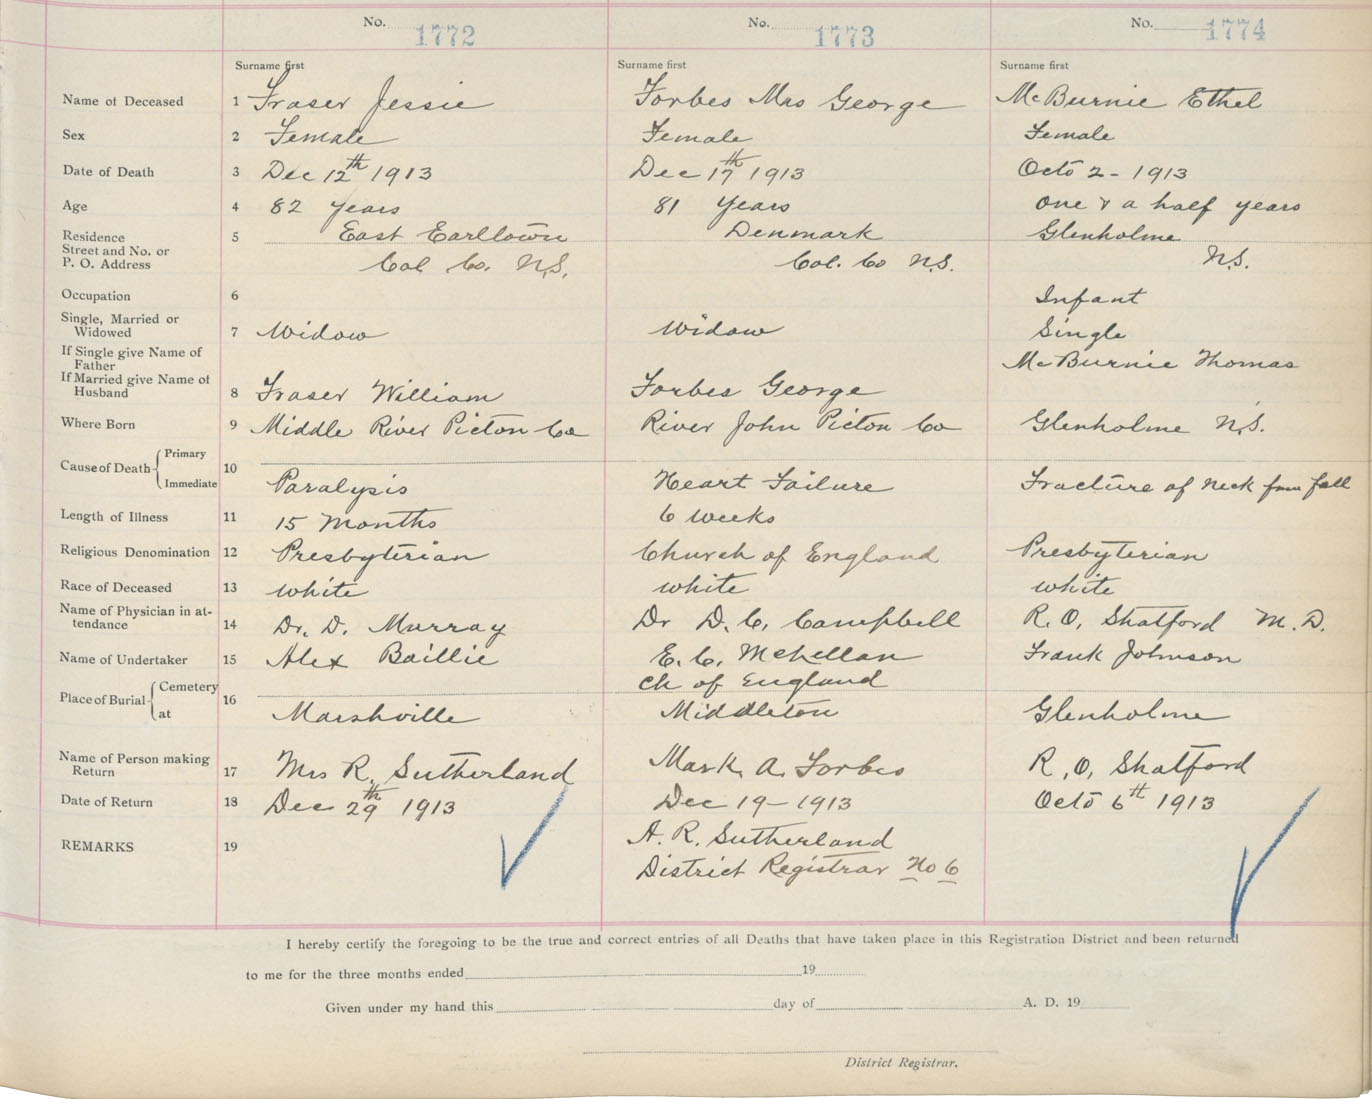 No. 1772 No. 1773 No. 1774
Surname first Surname first Surname first
Name of Deceased 1 Fraser Jessie Forbes Mrs George McBurnie Ethel
Sex 2 Female Female Female
Date of Death 3 Dec 12th 1913 Dec 17th 1913 Octo 2 - 1913
Age 4 82 years 81 years one & a half years
Residence 5 East Earltown Denmark Glenholme
Street and No. or
P. O. Address Col Co. N.S. Col. Co N.S. N.S.
Occupation 6 Infant
Single, Married or
Widowed 7 Widow Widow Single
If Single give Name of
Father McBurnie Thomas
If Married give Name of
Husband 8 Fraser William Forbes George
Where Born 9 Middle River Picton Co River John Picton Co Glenholme N.S.
Cause of Death Primary
Immediate 10 Paralysis Heart Failure Fracture of neck from fall
Length of Illness 11 15 Months 6 weeks
Religious Denomination 12 Presbyterian Church of England Presbyterian
Race of Deceased 13 white white white
Name of Physician in at-
tendance 14 Dr. D. Murray Dr D. C. Campbell R. O. Shatford M. D.
Name of Undertaker 15 Alex Baillie E. C. McLellan Frank Johnson
Place of Burial Cemetery 16 Ch of England
at Marshville Middleton Glenholme
Name of Person making
Return 17 Mrs R. Sutherland Mark A. Forbes R. O. Shatford
Date of Return 18 Dec 29th 1913 Dec 19 - 1913 Octo 6th 1913
REMARKS 19 A. R. Sutherland
District Registrar No 6
I hereby certify the foregoing to be the true and correct entries of all Deaths that have taken place in this Registration District and been returned
to me for the three months ended 19
Given under my hand this day of A. D. 19
District Registrar.